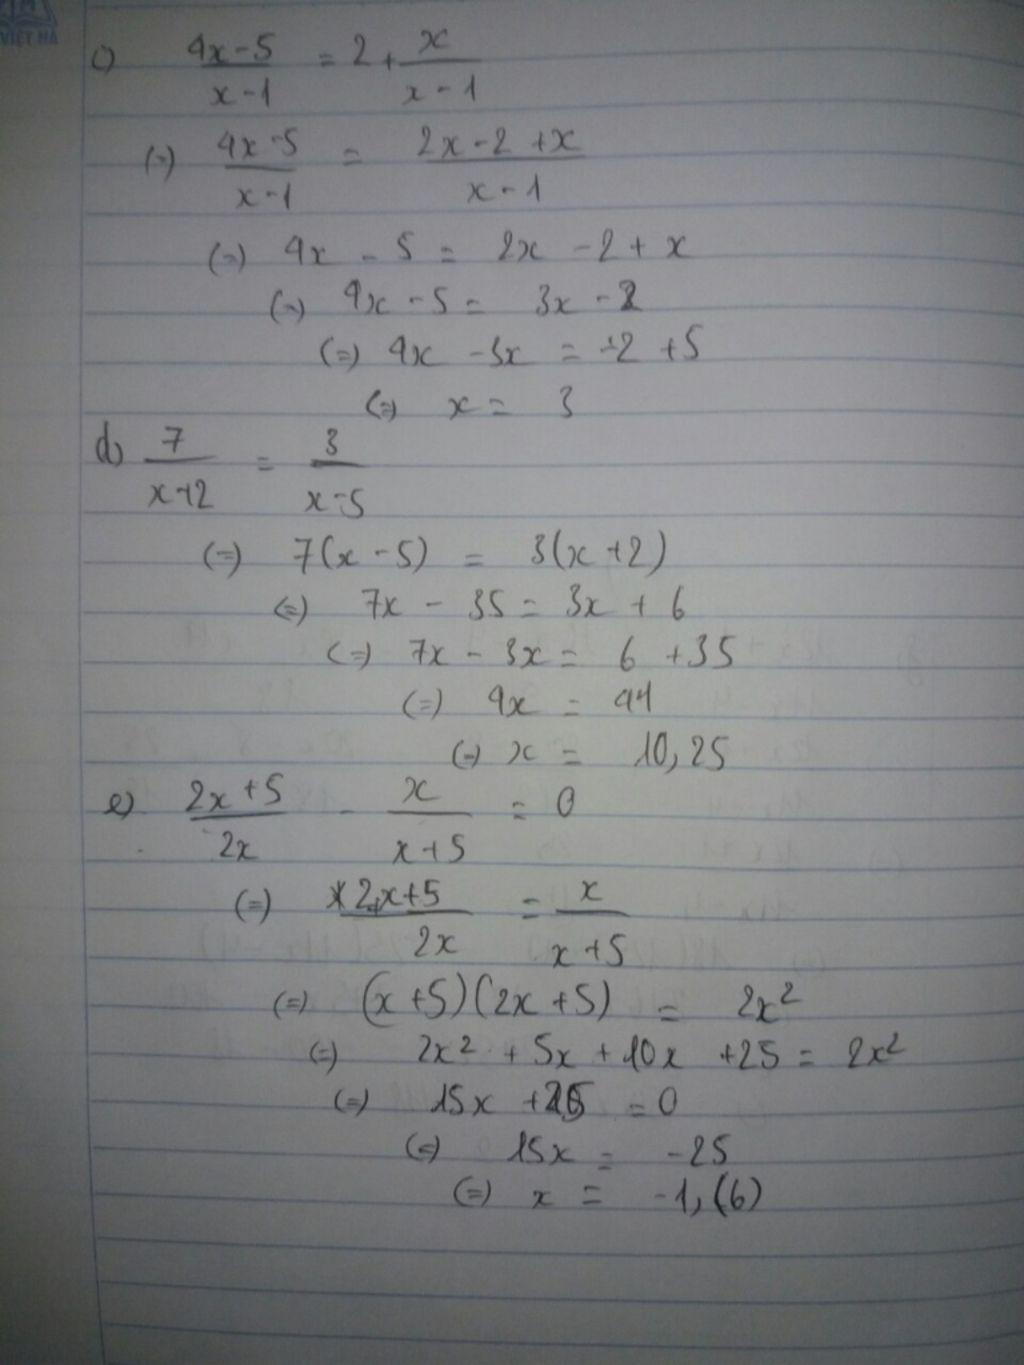 VIỆT HÀ
c) (4x-5)/(x-1) = 2 + x/(x-1)
(=) (4x-5)/(x-1) = (2x-2+x)/(x-1)
(=) 4x - 5 = 2x - 2 + x
(=) 4x - 5 = 3x - 2
(=) 4x - 3x = -2 + 5
(=) x = 3
d) 7/(x+2) = 3/(x-5)
(=) 7(x-5) = 3(x+2)
(=) 7x - 35 = 3x + 6
(=) 7x - 3x = 6 + 35
(=) 4x = 41
(=) x = 10,25
e) (2x+5)/(2x) - x/(x+5) = 0
(=) (2x+5)/(2x) = x/(x+5)
(=) (x+5)(2x+5) = 2x²
(=) 2x² + 5x + 10x + 25 = 2x²
(=) 15x + 25 = 0
(=) 15x = -25
(=) x = -1,(6)